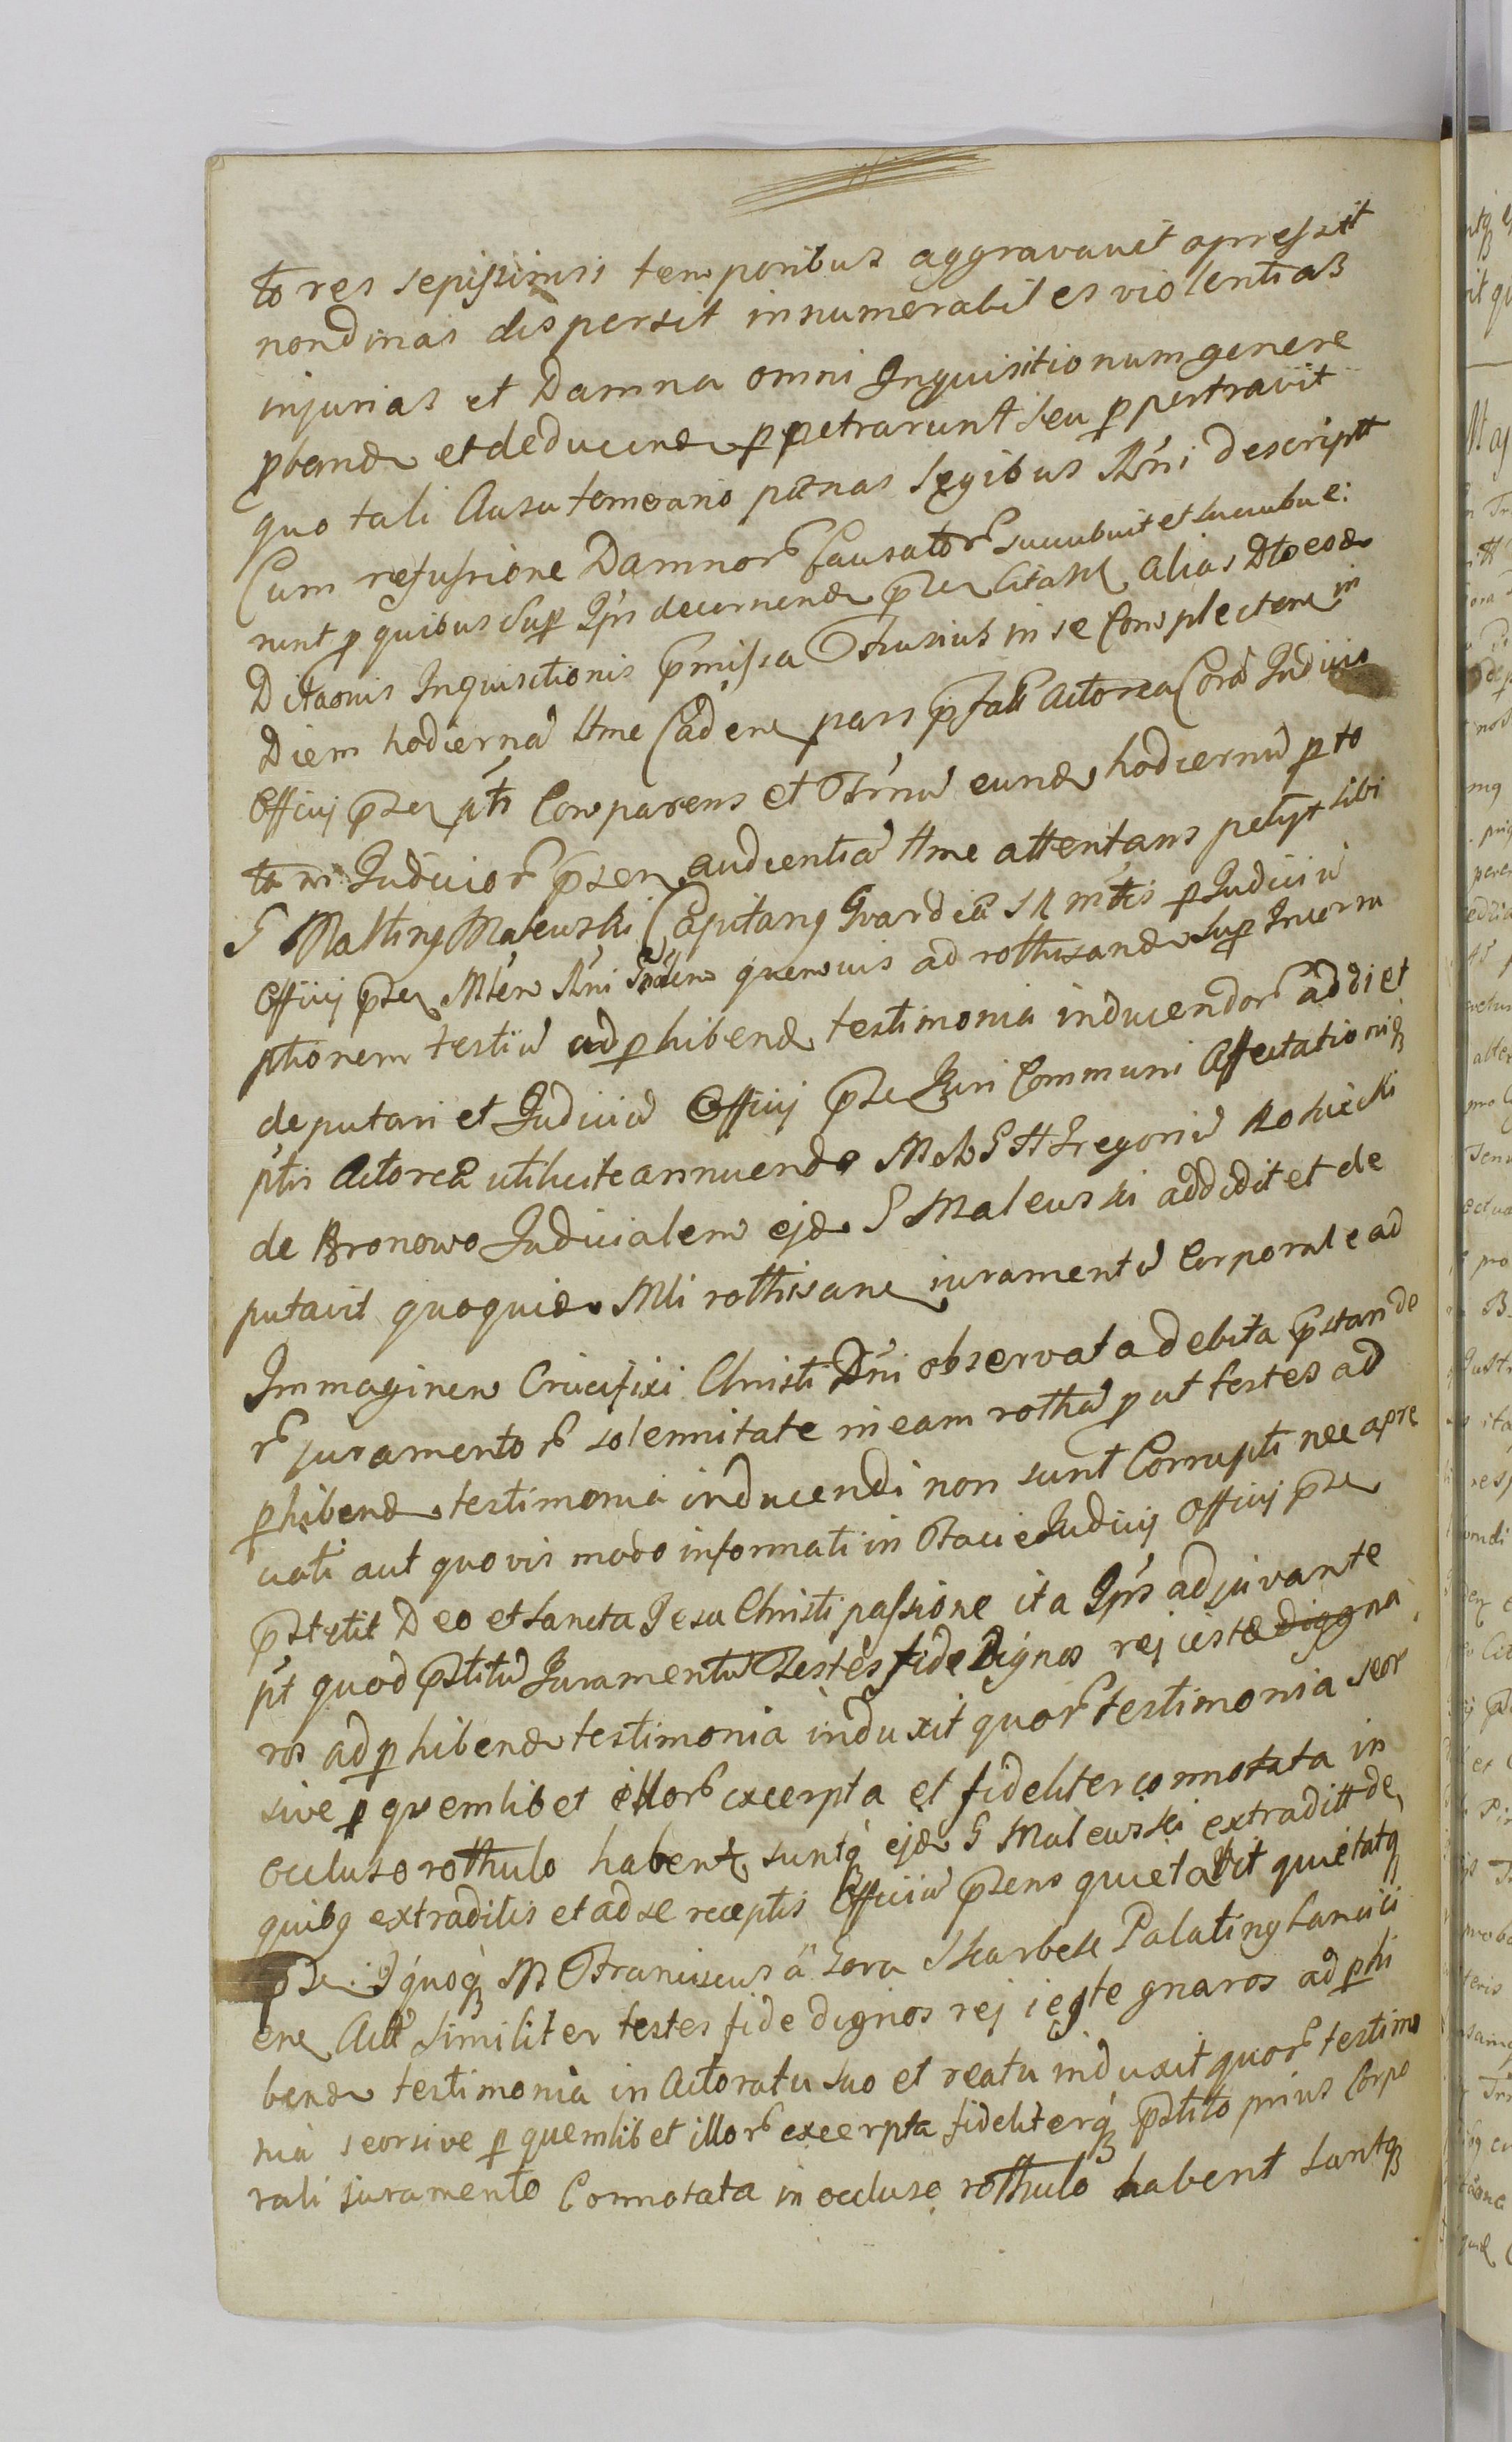 tores sepissimis temporibus aggravavit apressit
nondinas dispersit innumerabiles violentias
injurias et Damna omni Inquisitionum genere
pband et deducend ppetrarunt seu ppertravit
quo tali Ausu temerario pænas legibus Rńi descriptt
Cum refusione Damnor Causator succubuit et succubue:
runt p quibus Sup Ipś decernend citatt alias Dto eod
Dittaonis Inquisitionis pmissa fusius in se Complecten in
Diem hodiernā ttme Caden pars pfatt Actorea Corā Iudicio
Officij pse pti Comparens et eund hodiernū p to
Iudicior psen audientiā ttme attentans petijt sibi
G Malting Maleuski Capitang Gvardiæ S R mttis p Iudiciū
Officij pse Mlem Rni quemvis ad rothisand Sup
ptionem testiū ad phibend testimonia inducendor addi et
deputari et Iudiciū Officij pse Iuri Communi Affectationiq
ptis Actoreæ annuendo M G Gregoriū
de Bronowo Iudicialem ejd G Maleuski addidit et de
putavit quoquid Mli rothisan iuramentū Corporale ad
Immaginem Crucifixi Christi Dńi observata debita pstan de
r juramentor solennitate in eam rothā put testes ad
phibend testimonia inducendi non sunt Corrupti nec apre
ciati aut quovis modo informati in facie Iudicij Officij pse
pstitit Deo et Sancta Iesu Christi passione ita Ipś adjuvante
pt quod pstitū Iuramentū Testes fide Dignos rej iestæ digg na
ros ad phibend testimonia induxit quor testimonia seor
sive p quemlibet illor excerpta et fideliter connotata in
occluso rothulo habent suntq ejd G Maleuski extraditt de
quibg extraditis et ad se receptis Officiū psens quietavit quietatq
pse. G quoq M Franciscus a Gora Skarbek Palating
en Actt Similiter testes fide dignos rej ieste gnaros ad phi
bend testimonia in Actoratu suo et reatu induxit quor testimo
nia seorsive p quemlibet illor excerpta fideliterq pstito prius Corpo
rali juramento Connotata in occluso rothulo habent suntq